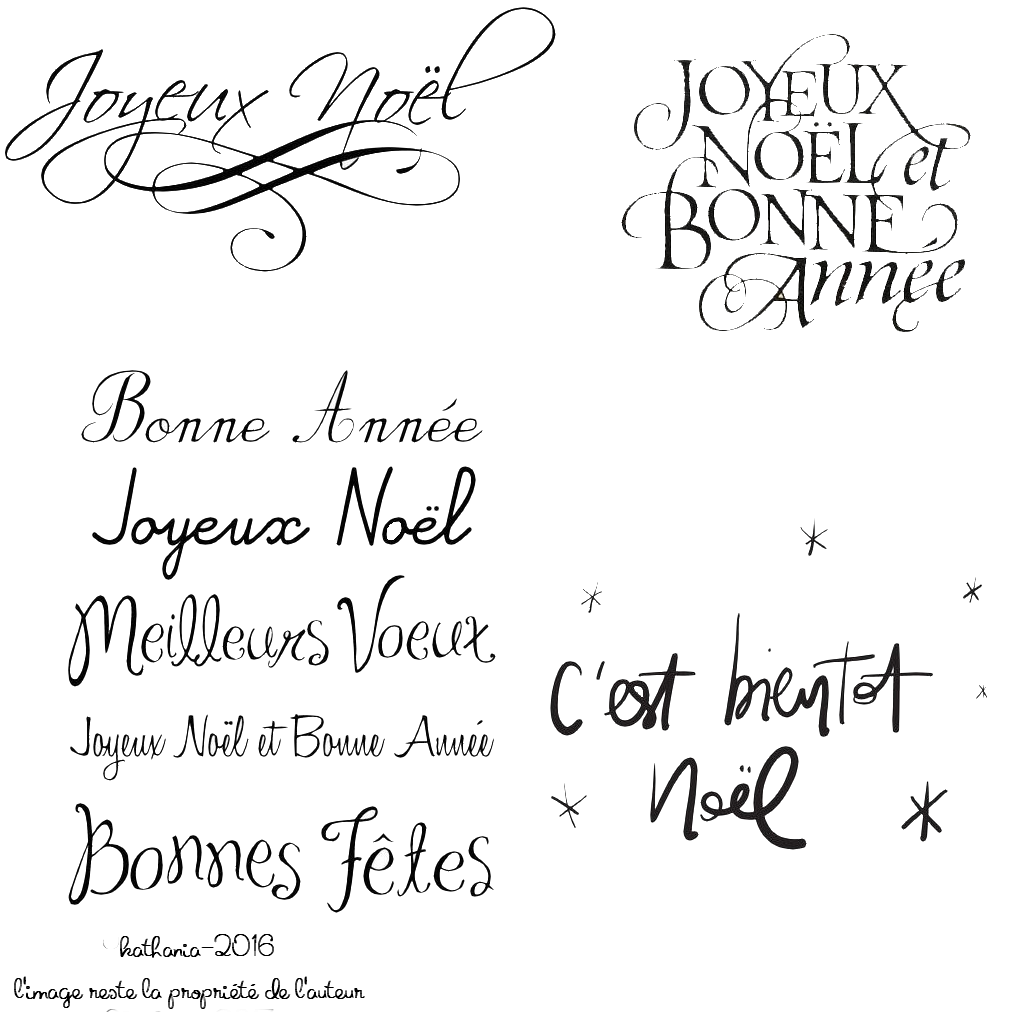 Joyeux Noël
JOYEUX
NOËL et
BONNE
Année
Bonne Année
Joyeux Noël
Meilleurs Voeux
Joyeux Noël et Bonne Année
Bonnes Fêtes
c'est bientot
noël
kathania-2016
l'image reste la propriété de l'auteur